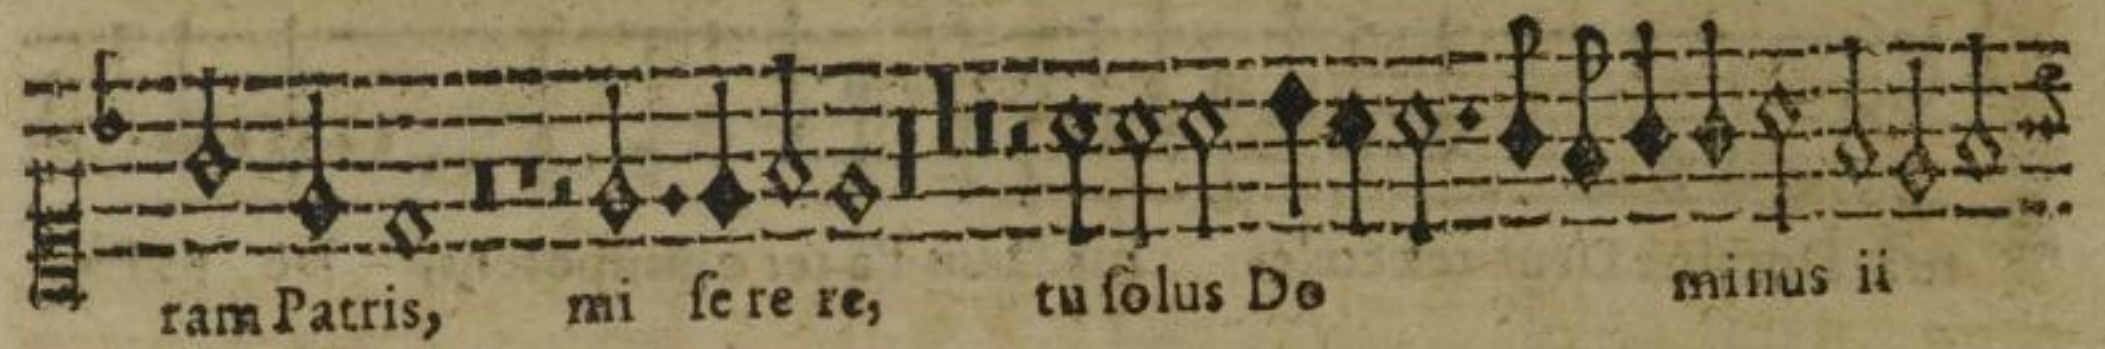 ram Patris, mi ſe re re, tu ſolus Do minus ii